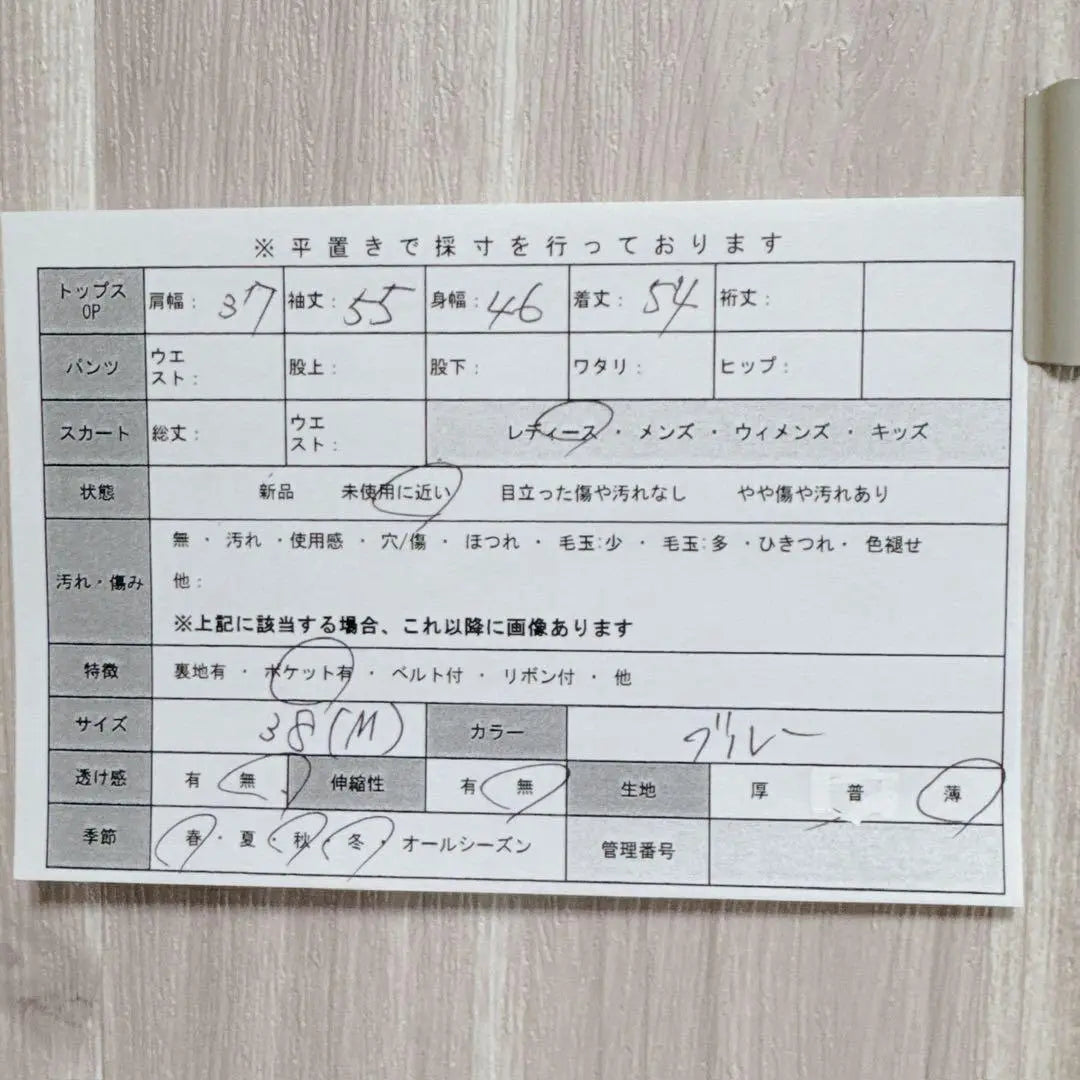 ※平置きで採寸を行っております
トップス OP 肩幅： 37 袖丈： 55 身幅： 46 着丈： 54 裄丈：
パンツ ウエスト： 股上： 股下： ワタリ： ヒップ：
スカート 総丈： ウエスト： レディース ・ メンズ ・ ウィメンズ ・ キッズ
状態 新品 未使用に近い 目立った傷や汚れなし やや傷や汚れあり
汚れ・傷み 無 ・ 汚れ ・使用感 ・ 穴/傷 ・ ほつれ ・ 毛玉:少 ・ 毛玉:多 ・ひきつれ・ 色褪せ
他：
※上記に該当する場合、これ以降に画像あります
特徴 裏地有 ・ ポケット有 ・ ベルト付 ・ リボン付 ・ 他
サイズ 38(M) カラー グレー
透け感 有 無 伸縮性 有 無 生地 厚 普 薄
季節 春・夏・秋・冬・オールシーズン 管理番号